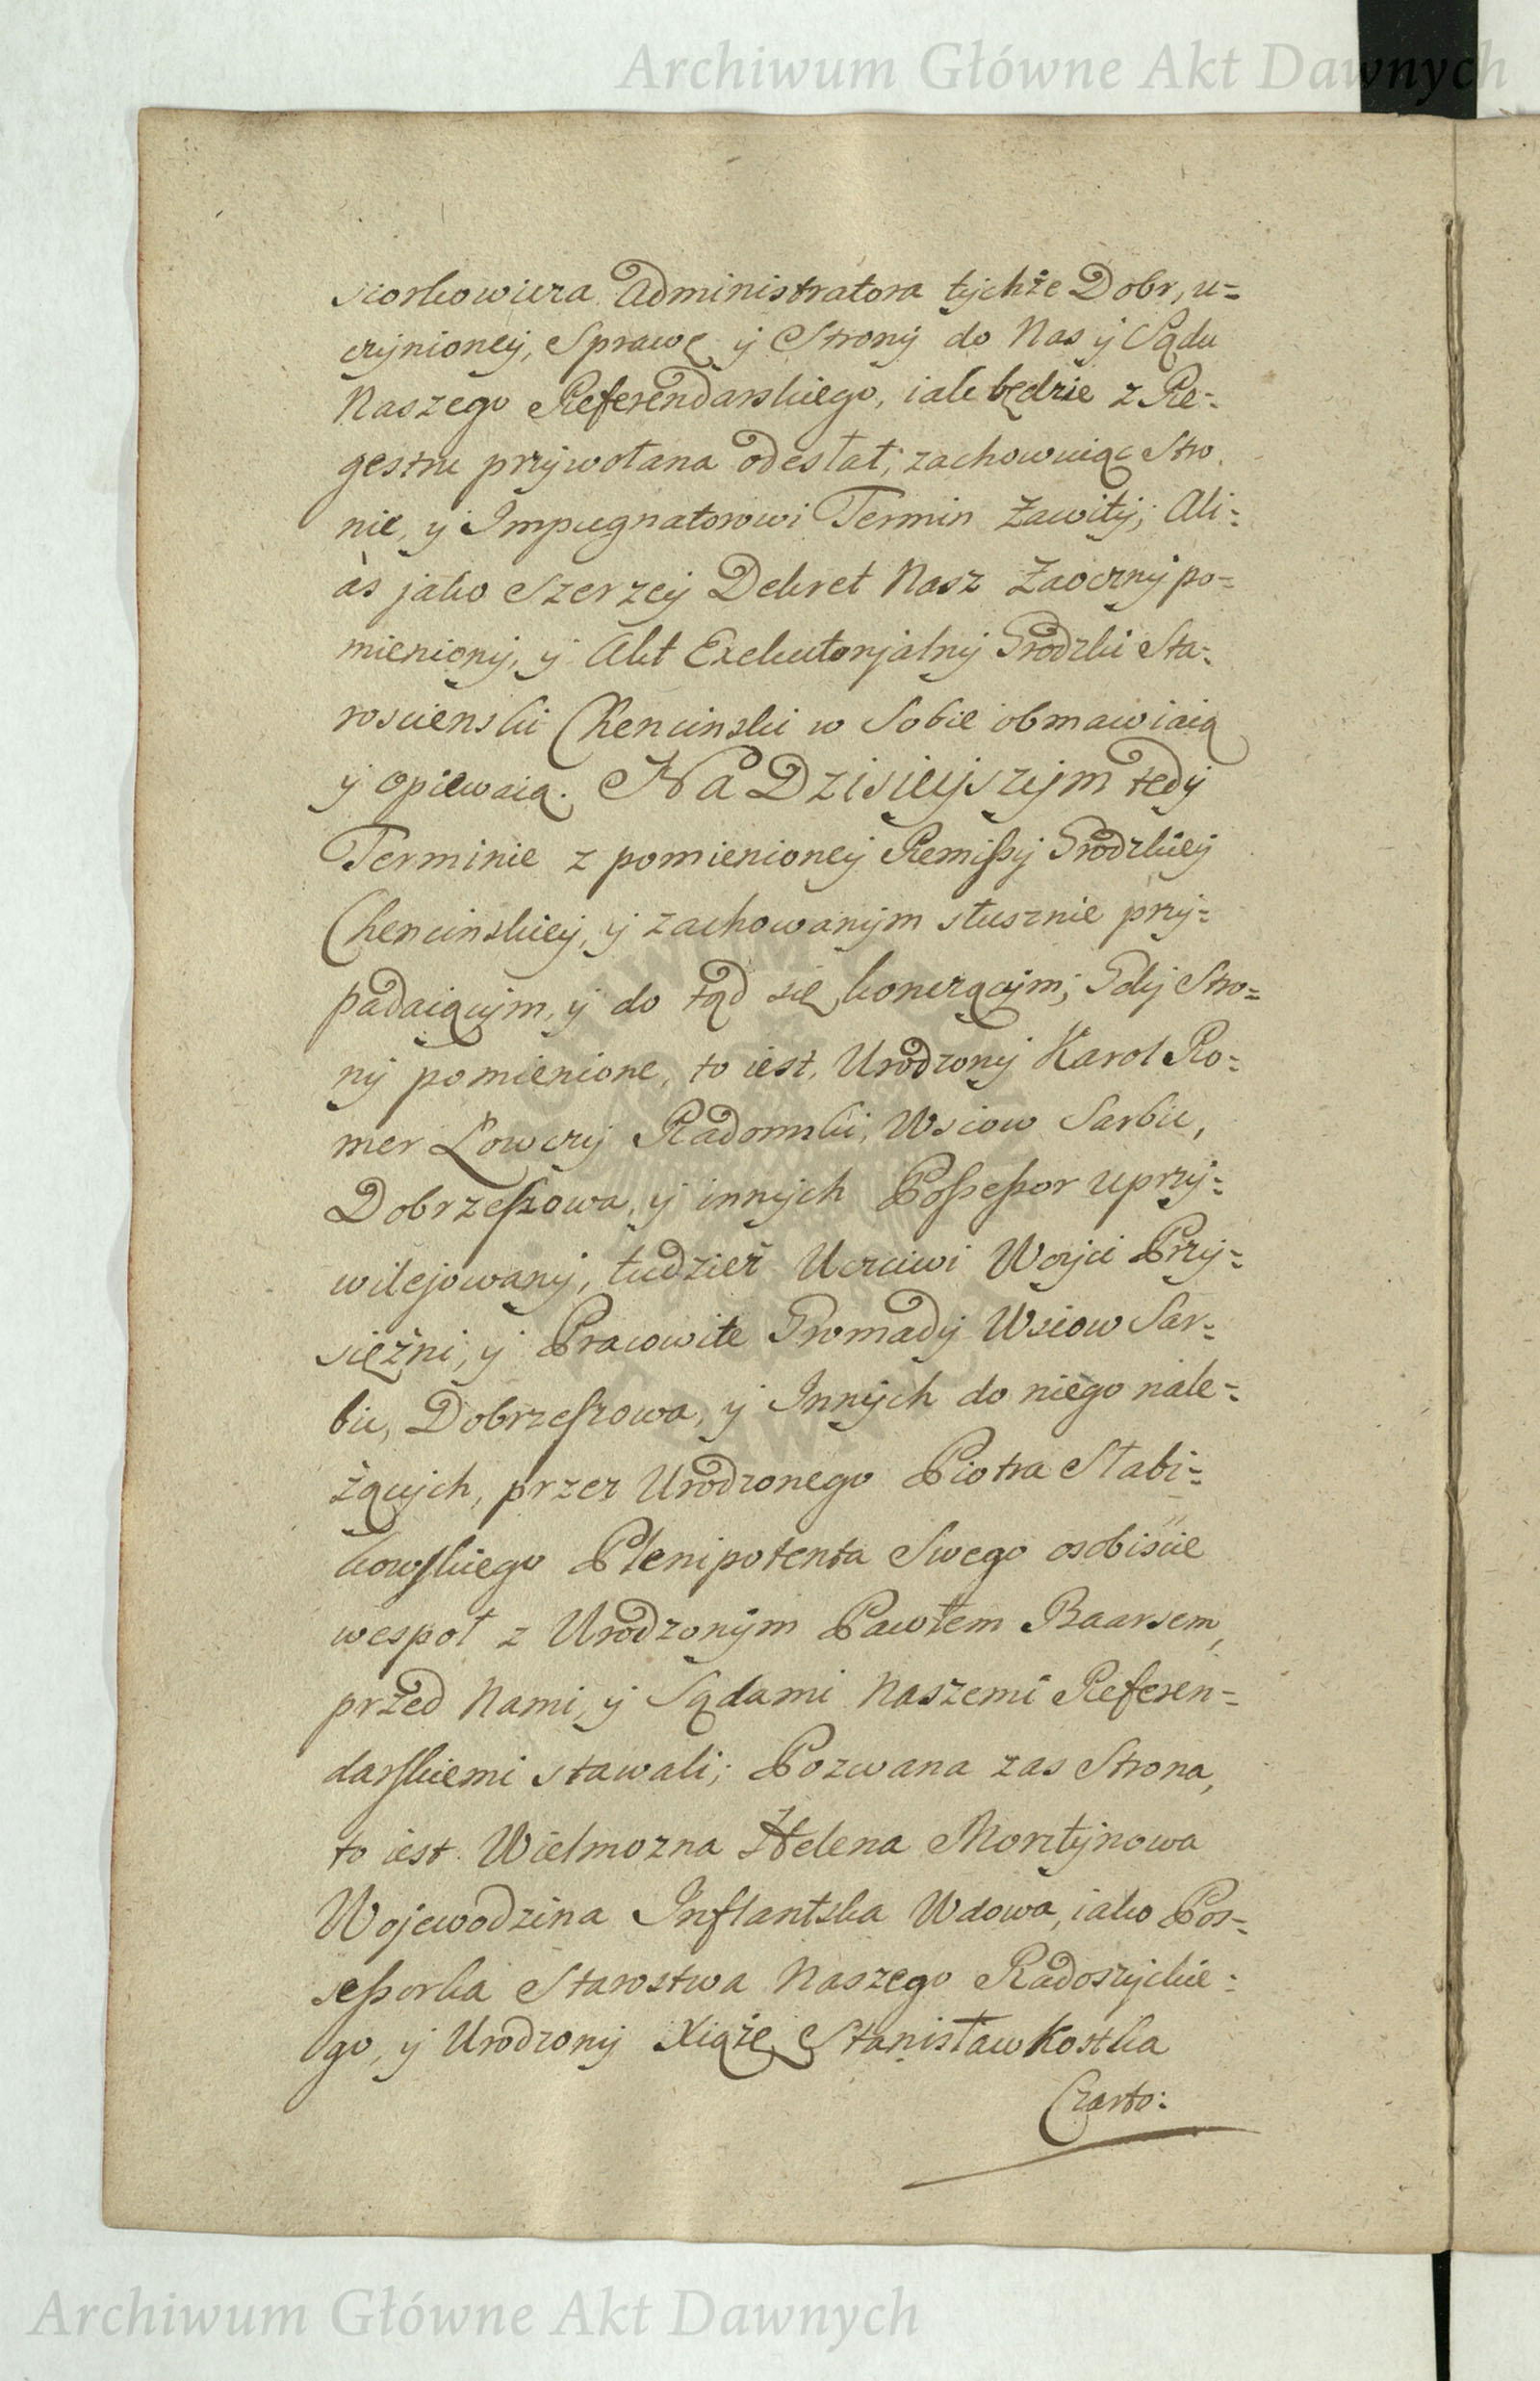 Archiwum Główne Akt Dawnych
siorkowicza Administratora tychże Dobr, u=
czynioney, Sprawę y Strony do Nas y Sądu
Naszego Referendarskiego, iak będzie z Re=
gestru przywołana odesłał; zachowuiąc Stro
nie, y Impugnatorowi Termin Zawity; Ali=
às jako szerzey Dekret Nasz Zaoczny po=
mieniony, y Akt Exekutorjalny Grodzki Sta=
roscienski Chencinski w Sobie obmawiaią
y opiewaią. Na Dzisieyszym tedy
Terminie z pomienioney Remissy Grodzkiey
Chencinskiey, y zachowanym słusznie przy=
padaiącym, y do tąd się konczącym; Gdy Stro=
ny pomienione, to iest, Urodzony Karol Ro=
mer Łowczy Radomski, Wsiow Sarbic,
Dobrzeszowa, y innych Possessor uprzy=
wilejowany, tudzież Uczciwi Woyci Przy=
siężni, y Pracowite Gromady Wsiow Sar=
bic, Dobrzeszowa, y Innych do niego nale=
żących, przez Urodzonego Piotra Słabi=
kowskiego Plenipotenta Swego osobiscie
wespoł z Urodzonym Pawłem Baarsem,
przed Nami, y Sądami Naszemi Referen=
darskiemi stawali; Pozwana zas Strona,
to iest Wielmozna Helena Morsztynowa
Wojewodzina Inflantska Wdowa, iako Pos=
sessorka Starostwa Naszego Radoszyckie=
go, y Urodzony Xiąże Stanisław Kostka
Czarto:
Archiwum Główne Akt Dawnych